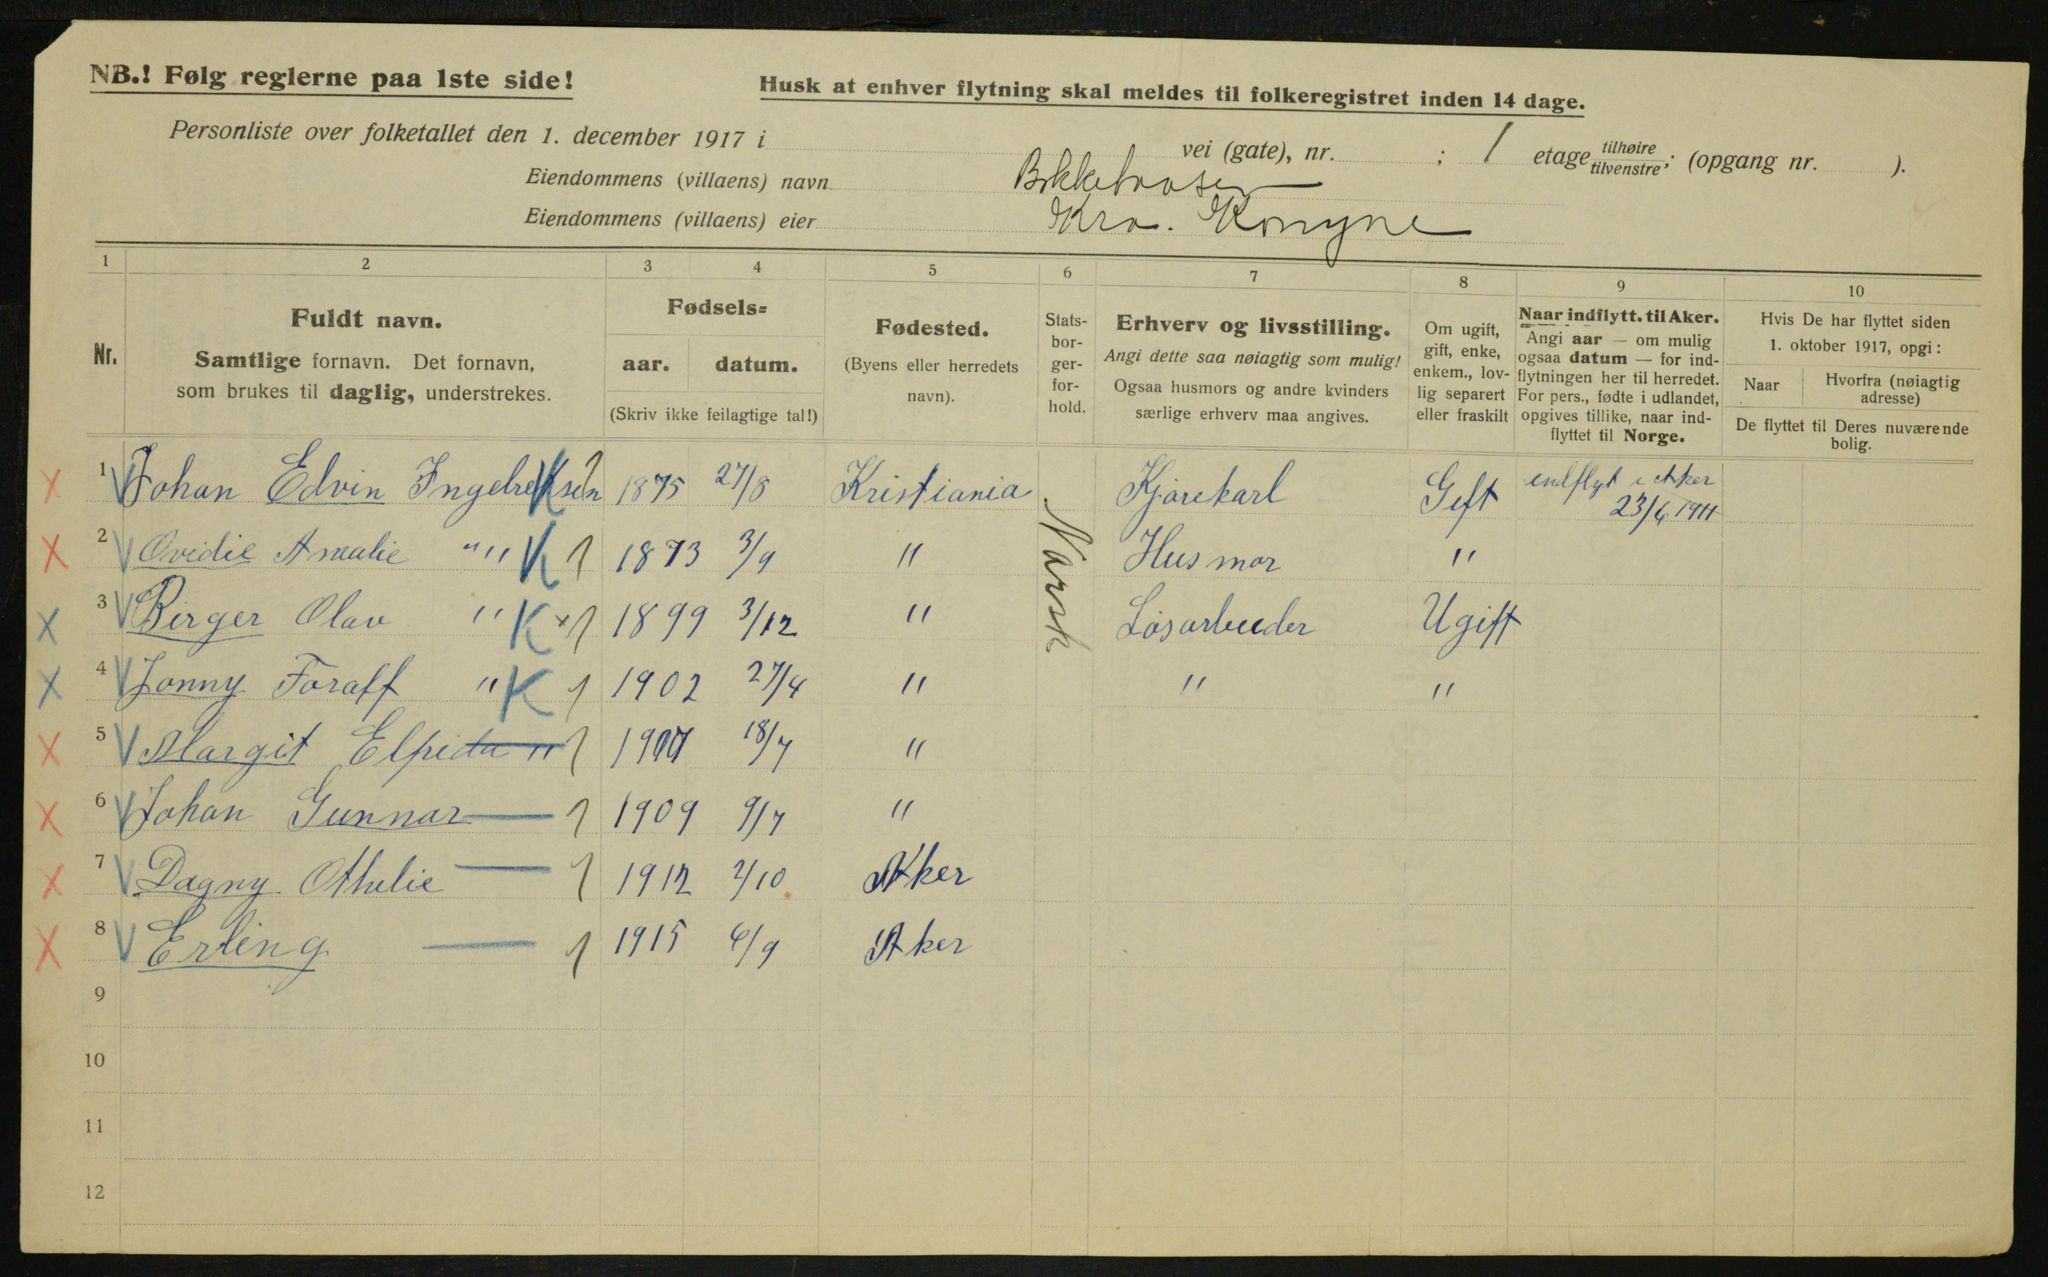 NB.! Følg reglerne paa 1ste side!
Husk at enhver flytning skal meldes til folkeregistret inden 14 dage.
Personliste over folketallet den 1. december 1917 i vei (gate), nr. ; 1 etage tilhøire/tilvenstre; (opgang nr. ).
Eiendommens (villaens) navn
Eiendommens (villaens) eier Kra.
1 2 3 4 5 6 7 8 9 10
Nr.
Fuldt navn.
Samtlige fornavn. Det fornavn,
som brukes til daglig, understrekes.
Fødsels=
aar. datum.
(Skriv ikke feilagtige tal!)
Fødested.
(Byens eller herredets
navn).
Stats-
bor-
ger-
for-
hold.
Erhverv og livsstilling.
Angi dette saa nøiagtig som mulig!
Ogsaa husmors og andre kvinders
særlige erhverv maa angives.
Om ugift,
gift, enke,
enkem., lov-
lig separert
eller fraskilt
Naar indflytt. til Aker.
Angi aar — om mulig
ogsaa datum — for ind-
flytningen her til herredet.
For pers., fødte i udlandet,
opgives tillike, naar ind-
flyttet til Norge.
Hvis De har flyttet siden
1. oktober 1917, opgi:
Naar
Hvorfra (nøiagtig
adresse)
De flyttet til Deres nuværende
bolig.
X 1 V Johan Edvin Ingebretsen K 1 1875 27/8 Kristiania Norsk Kjørekarl Gift indflyt i Aker 23/6 1911
X 2 V Ovidie Amalie " " K 1 1873 3/9 " Husmor "
X 3 V Birger Olav " K x 1 1899 3/12 " Løsarbeider Ugift
X 4 V Jonny Foraff " K 1 1902 27/4 " " "
X 5 V Margit Elfrida — " 1 1907 18/7 "
X 6 V Johan Gunnar — 1 1909 9/7 "
X 7 V Dagny Othelie — 1 1912 2/10 Aker
X 8 V Erling — 1 1915 6/9 Aker
9
10
11
12